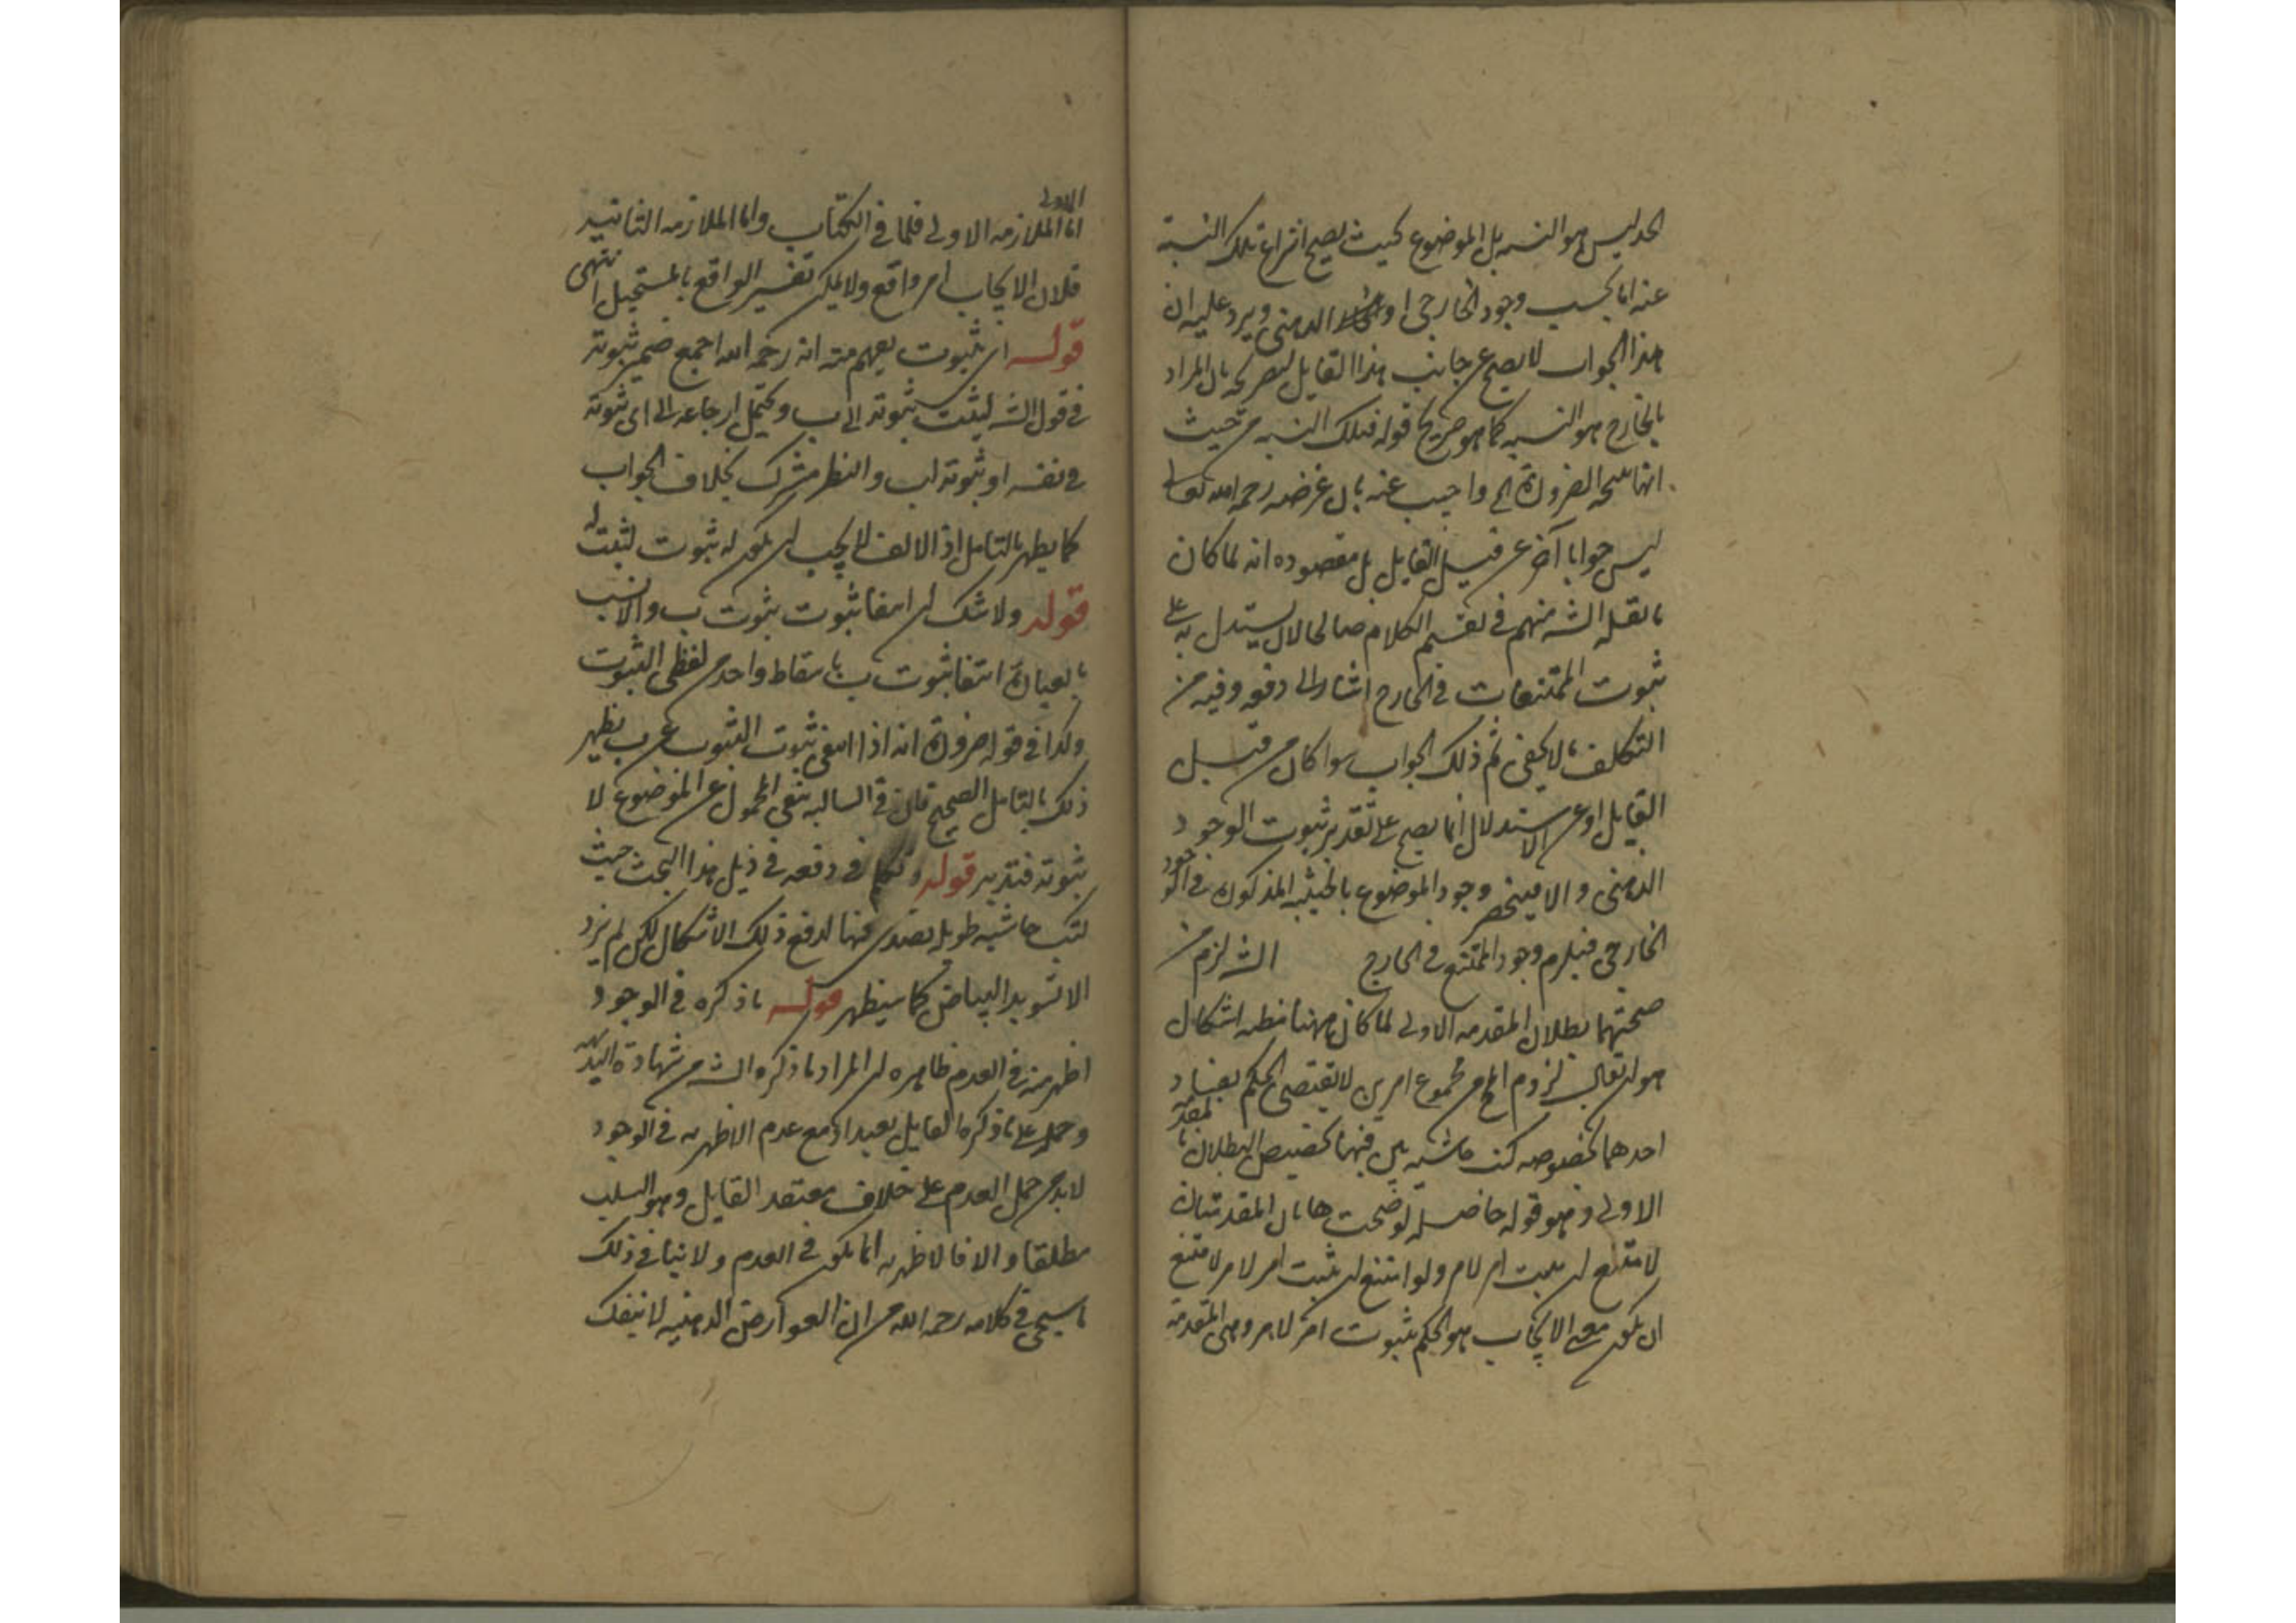 الحد ليس هو النسبه بل الموضوع بحيث يصح انتزاع تلك النسبة
عنه اما بحسب وجود الخارجى او الذهنى ويرد عليه ان
هذا الجواب لا يصح من جانب هذا القايل لتصريحه بان المراد
بالخارج هو النسبه كما هو صريح قوله فتلك النسبه من حيث
انها الضرورة الخ واجيب عنه بان غرضه رحمه الله تعالى
ليس جوابا آخر عن قبل القايل بل مقصوده انه لما كان
ما نقله الشه منهم فى تقسيم الكلام صالحا لان يستدل به على
ثبوت الممتنعات فى الخارج اشار الى دفعه وفيه من
التكلف ما لا يخفى ثم ذلك الجواب سوا كان من قبل
القايل او عن الاستدلال انما يصح على تقدير ثبوت الوجود
الذهنى والا فينحصر وجود الموضوع بالحيثيه المذكورة فى الوجود
الخارجى فيلزم وجود الممتنع فى الخارج الشه لزم من
صحتهما بطلان المقدمه الاولى لما كان ههنا مظنه اشكال
هو ان يقال لزوم المح من مجموع امرين لا يقتضى الحكم بفساد
احدهما بخصوصه كتب حاشيه بين فيها تخصيص البطلان بالمقدمة
الاولى وهو قوله حاصله لو صحت هاتان المقدمتان
لامتنع ان يثبت امر لامر ولو امتنع ان يثبت امر لامر لامتنع
ان يكون معنى الايجاب هو الحكم بثبوت امر لامر وهى المقدمة
الاولى
اما الملازمه الاولى فلما فى الكتاب واما الملازمه الثانيه
فلان الايجاب امر واقع ولا يمكن تفسير الواقع بالمستحيل انتهى
قوله اى ثبوت يفهم منه انه رحمه الله ارجع ضمير ثبوته
فى قول الشه ليثبت ثبوته الى ب ويحتمل ارجاعه الى اى ثبوته
فى نفسه او ثبوته لب والنظر مشترك بخلاف الجواب
كما يظهر بالتامل اذ الالف لا يجب ان يكون له ثبوت ليثبت له
قوله ولا شك ان انتفا ثبوت ثبوت ب والانسب
بالعبارة انتفا ثبوت ب باسقاط واحد من لفظى الثبوت
وكذا فى قوله ضرورة انه اذا انتفى ثبوت الثبوت عن ب يظهر
ذلك بالتامل الصحيح فان فى السالبه نفى المحمول عن الموضوع لا
ثبوته فتدبر قوله وتكلم فى دفعه فى ذيل هذا البحث حيث
كتب حاشيه طويله تصدى فيها لدفع ذلك الاشكال لكن لم يزد
الا تسويد البياض كما سيظهر قوله ما ذكره فى الوجود
اظهر منه فى العدم ظاهره ان المراد ما ذكره الشه من شهادة البديهه
وحمله على ما ذكره القايل بعيد اذ مع عدم الاظهريه فى الوجود
لا بد من حمل العدم على خلاف معتقد القايل وهو السلب
مطلقا والا فالاظهريه انما يكون فى العدم ولا ينافى ذلك
ما سيجى فى كلامه رحمه الله من ان العوارض الذهنيه لا ينفك